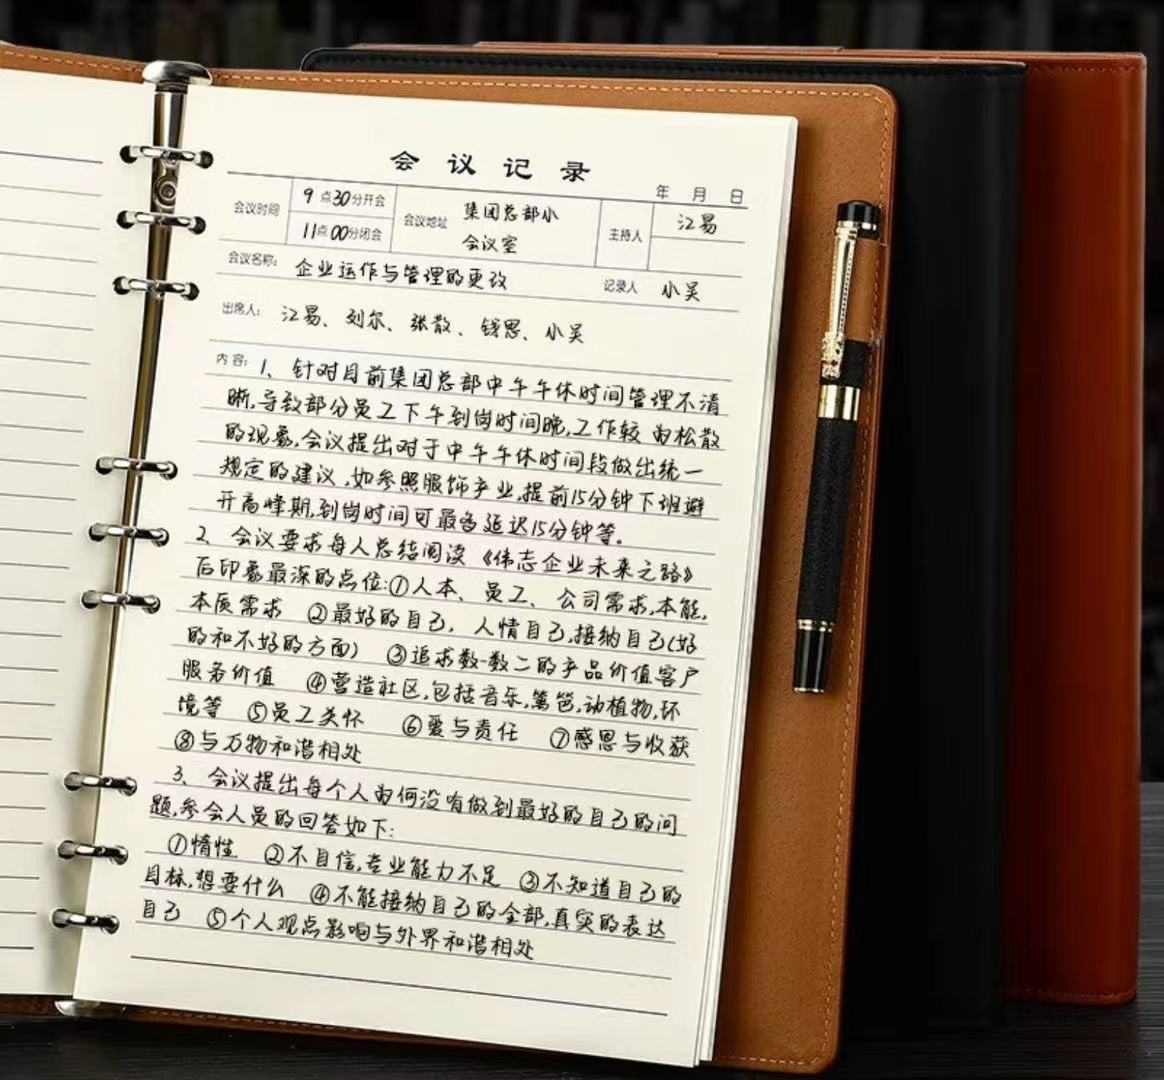 会议记录
年 月 日
会议时间 9点30分开会 会议地址 集团总部小 主持人 江易
11点00分闭会 会议室
会议名称: 企业运作与管理的更改 记录人 小吴
出席人: 江易、刘尔、张散、钱思、小吴
内容: 1、针对目前集团总部中午午休时间管理不清
晰,导致部分员工下午到岗时间晚,工作较为松散
的现象,会议提出对于中午午休时间段做出统一
规定的建议,如参照服饰产业,提前15分钟下班避
开高峰期,到岗时间可最多延迟15分钟等。
2、会议要求每人总结阅读《伟志企业未来之路》
后印象最深的点位:①人本、员工、公司需求,本能,
本质需求 ②最好的自己,人情自己,接纳自己(好
的和不好的方面) ③追求数一数二的产品价值客户
服务价值 ④营造社区,包括音乐,篱笆,动植物,环
境等 ⑤员工关怀 ⑥爱与责任 ⑦感恩与收获
⑧与万物和谐相处
3、会议提出每个人为何没有做到最好的自己的问
题,参会人员的回答如下:
①惰性 ②不自信,专业能力不足 ③不知道自己的
目标,想要什么 ④不能接纳自己的全部,真实的表达
自己 ⑤个人观点影响与外界和谐相处